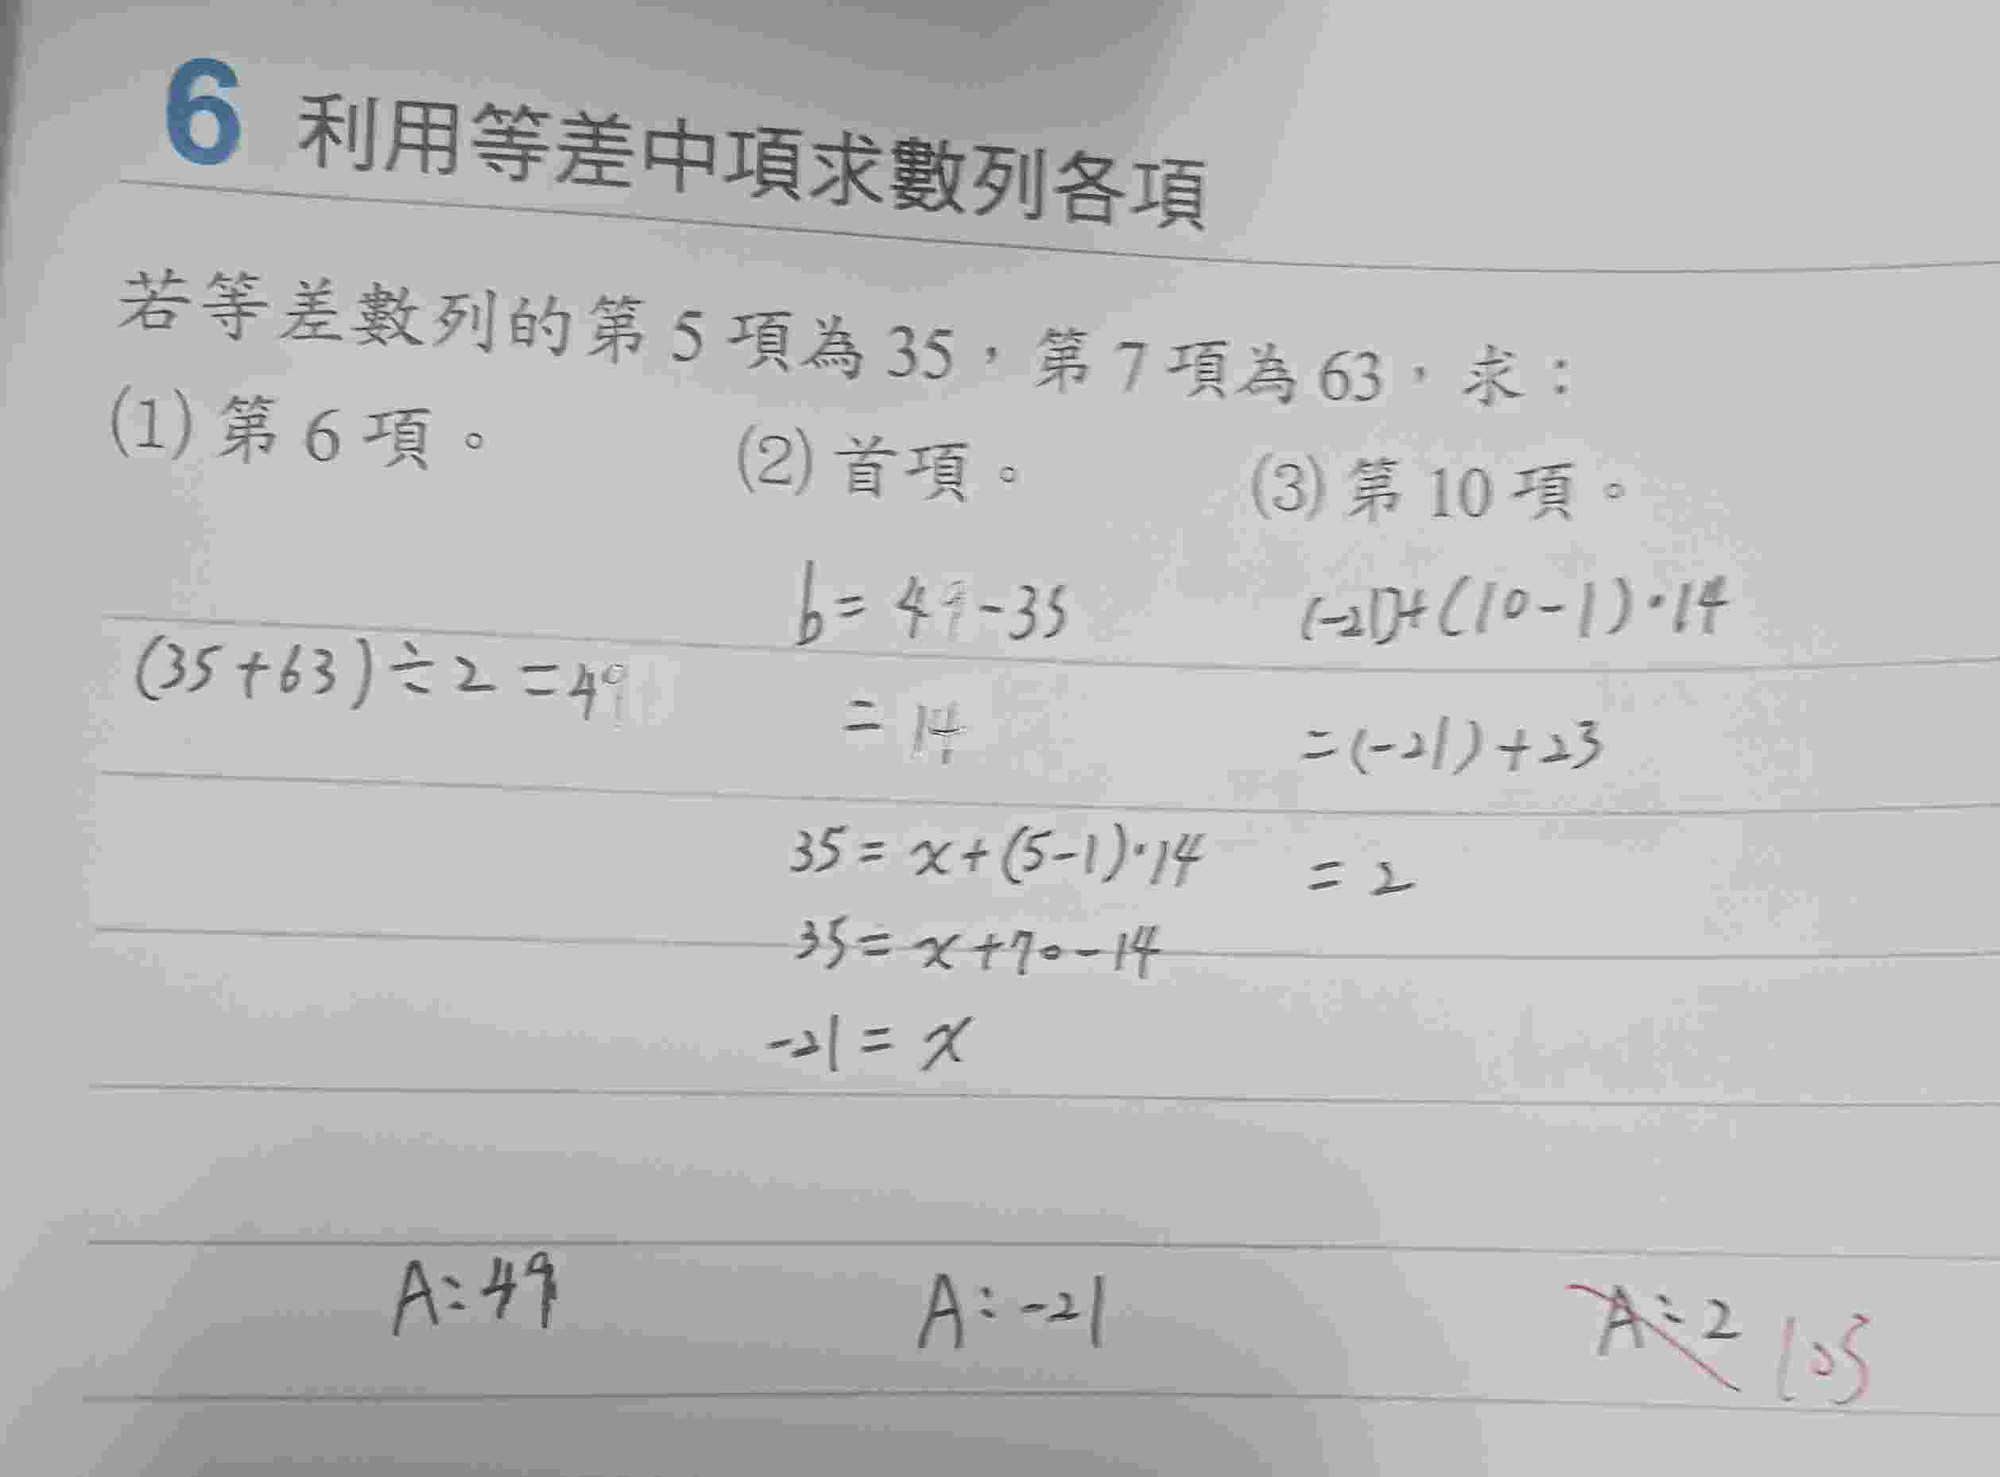 6 利用等差中項求數列各項
若等差數列的第5項為35,第7項為63,求:
(1)第6項。 (2)首項。 (3)第10項。
(35+63)÷2=49
b=49-35
=14
35=x+(5-1)·14
35=x+70-14
-21=x
(-21)+(10-1)·14
=(-21)+23
=2
A:49 A:-21 A:2 105